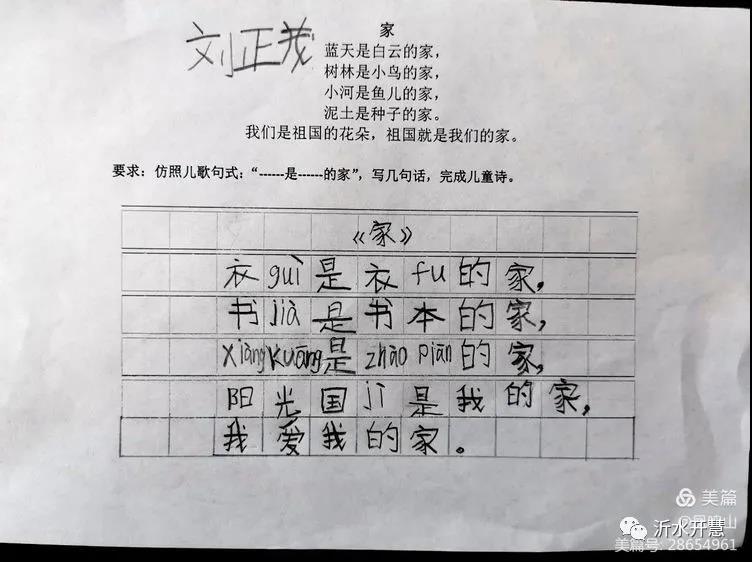 家
刘正茂
蓝天是白云的家，
树林是小鸟的家，
小河是鱼儿的家，
泥土是种子的家。
我们是祖国的花朵，祖国就是我们的家。
要求：仿照儿歌句式：“------是------的家”，写几句话，完成儿童诗。
《家》
衣guì是衣fu的家，
书jià是书本的家，
xiàngkuāng是zhào piān的家，
阳光国jì是我的家，
我爱我的家。
美篇
沂水开慧
美篇号：28654961